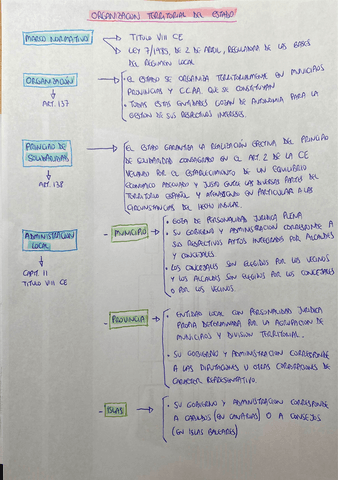 ORGANIZACIÓN TERRITORIAL DEL ESTADO
MARCO NORMATIVO
TITULO VIII CE
LEY 7/1985, DE 2 DE ABRIL, REGULADORA DE LAS BASES
DEL REGIMEN LOCAL
ORGANIZACIÓN
ART. 137
• EL ESTADO SE ORGANIZA TERRITORIALMENTE EN MUNICIPIOS
PROVINCIAS Y CCAA QUE SE CONSTITUYAN
• TODAS ESTAS ENTIDADES GOZAN DE AUTONOMIA PARA LA
GESTION DE SUS RESPECTIVOS INTERESES.
PRINCIPIO DE
SOLIDARIDAD
ART. 138
EL ESTADO GARANTIZA LA REALIZACIÓN EFECTIVA DEL PRINCIPIO
DE SOLIDARIDAD CONSAGRADO EN EL ART. 2 DE LA CE
VELANDO POR EL ESTABLECIMIENTO DE UN EQUILIBRIO
ECONOMICO ADECUADO Y JUSTO ENTRE LAS DIVERSAS PARTES DEL
TERRITORIO ESPAÑOL Y ATENDIENDO EN PARTICULAR A LAS
CIRCUNSTANCIAS DEL HECHO INSULAR.
ADMINISTRACION
LOCAL
CAPT. II
TITULO VIII CE
- MUNICIPIO
• GOZA DE PERSONALIDAD JURIDICA PLENA
• SU GOBIERNO Y ADMINISTRACION CORRESPONDE A
SUS RESPECTIVOS AYTOS INTEGRADOS POR ALCALDES
Y CONCEJALES
• LOS CONCEJALES SON ELEGIDOS POR LOS VECINOS
Y LOS ALCALDES SON ELEGIDOS POR LOS CONCEJALES
O POR LOS VECINOS.
- PROVINCIA
• ENTIDAD LOCAL CON PERSONALIDAD JURIDICA
PROPIA DETERMINADA POR LA AGRUPACION DE
MUNICIPIOS Y DIVISION TERRITORIAL.
• SU GOBIERNO Y ADMINISTRACION CORRESPONDE
A LAS DIPUTACIONES U OTRAS CORPORACIONES DE
CARACTER REPRESENTATIVO.
- ISLAS
• SU GOBIERNO Y ADMINISTRACION CORRESPONDE
A CABILDOS (EN CANARIAS) O A CONSEJOS
(EN ISLAS BALEARES)